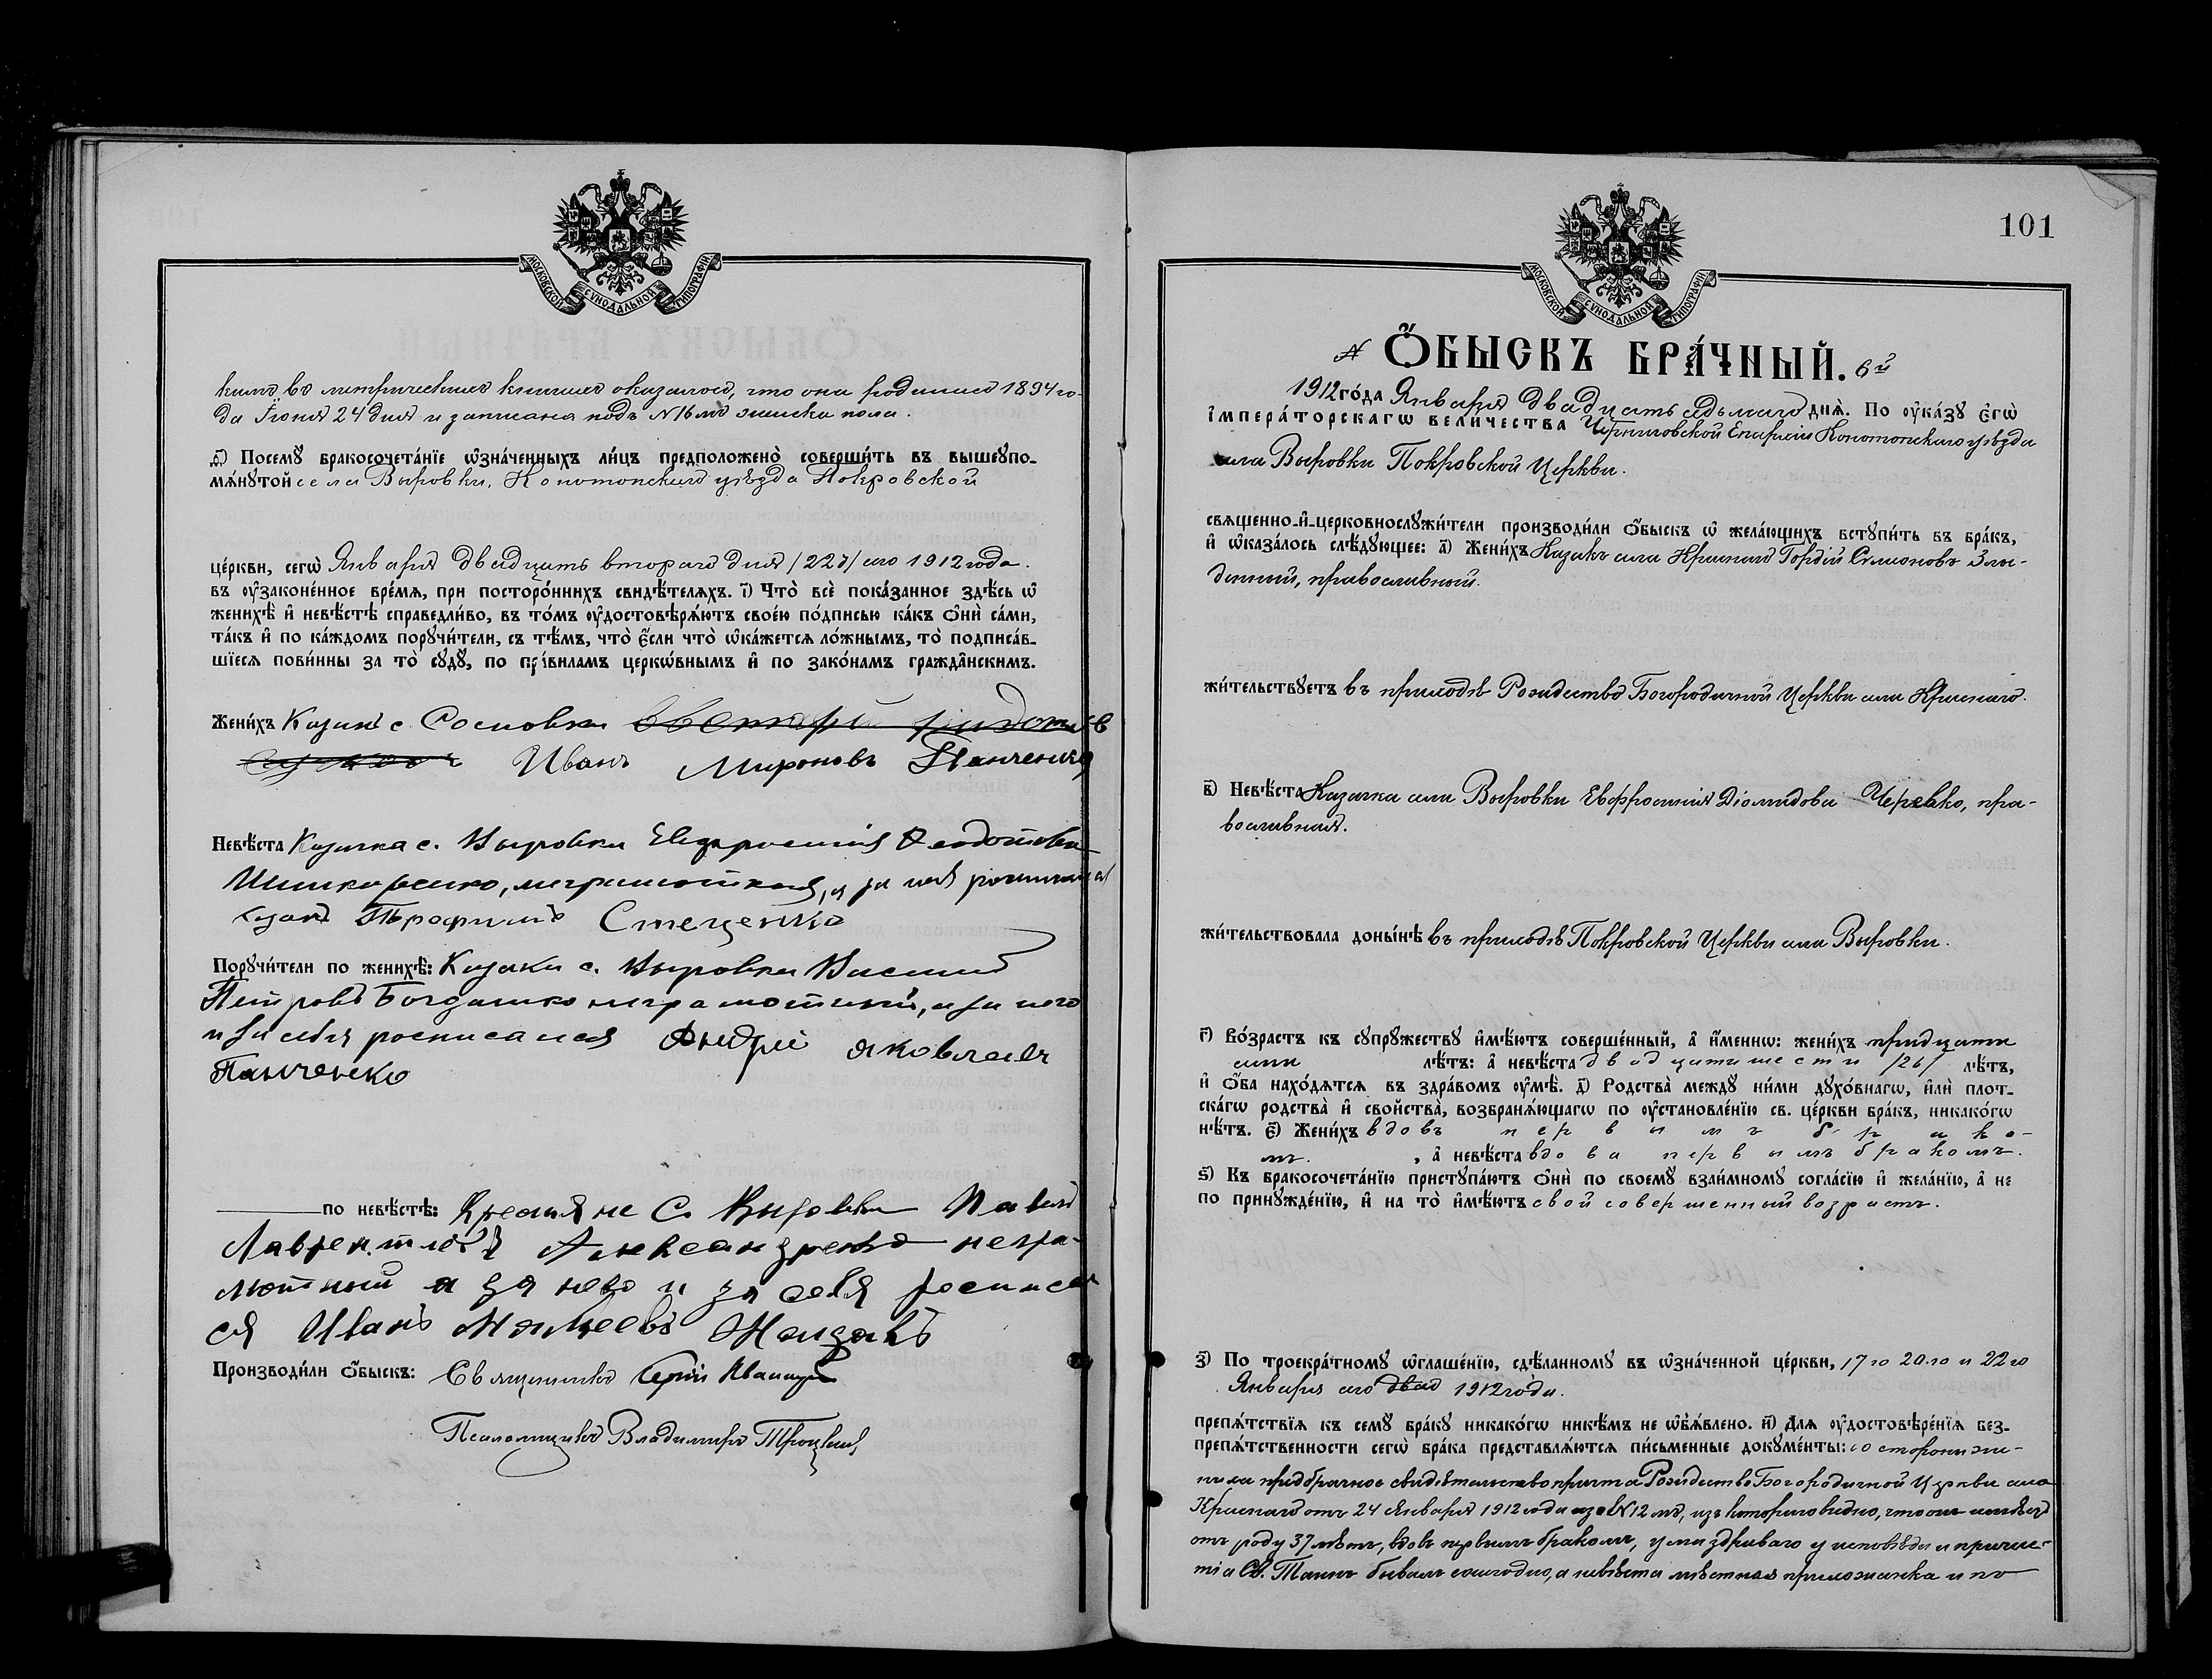 МОСКОВСКОЙ СѴНОДАЛЬНОЙ ТИПОГРАФІИ
кимъ въ метрическихъ книгахъ оказалось, что она родилась 1894 го-
да Іюня 24 дня и записана подъ №16 мъ женска пола.
Посемꙋ бракосочета́нїе ѡ҆зна́ченныхъ ли́цъ предположено̀ соверши́ть въ вышеꙋпо-
мѧ́нꙋтой села Выровки, Конотопскаго уѣзда Покровской
це́ркви, сегѡ̀ Января двадцать втораго дня /22/ сего 1912 года.
въ ᲂу҆законе́нное вре́мѧ, при посторо́ннихъ свидѣ́телѧхъ. і҃) Что̀ всѐ пока́занное здѣ́сь ѡ҆
женихѣ̀ и҆ невѣ́стѣ справедли́во, въ то́мъ ᲂу҆достовѣрѧ́ютъ свое́ю по́дписью ка́къ ѻ҆нѝ са́ми,
та́къ и҆ по ка́ждомъ порꙋчи́тели, съ тѣ́мъ, что̀ є҆́сли что̀ ѡ҆ка́жетсѧ ло́жнымъ, то̀ подписа́в-
шїесѧ пови́нны за то̀ сꙋдꙋ̀, по пра́виламъ церкѡ́внымъ и҆ по зако́намъ гражда̑нскимъ.
Жени́хъ Казакъ с. Сосновки
Иванъ Мироновъ Панченко
Невѣ́ста Казачка с. Выровки Евфросинія Феодотова
неграмотная, а за нея росписался
казакъ Трофимъ Стеценко
Порꙋчи́тели по женихѣ̀: Казаки с. Выровки Василій
Петровъ Богдашко неграмотный, а за него
и за себя росписался Андрій Яковлевъ
Панченко
по невѣ́стѣ: Крестьяне С. Выровки Павелъ
Лаврентіевъ Александренко негра-
мотный а за него и за себя росписал
ся Иванъ Моисеевъ
Производи́ли ѻ҆́быскъ: Священникъ Сергій Иваницкій
Псаломщикъ Владимиръ Троцкій
101
МОСКОВСКОЙ СѴНОДАЛЬНОЙ ТИПОГРАФІИ
Ѻ҆́БЫСКЪ БРА́ЧНЫЙ. 6й
1912 го́да Января двадцать седьмаго днѧ̀. По ᲂу҆ка́зꙋ є҆гѡ̀
і҆мпера́торскагѡ вели́чества Черниговской Епархіи Конотопскаго уѣзда
села Выровки Покровской Церкви.
свѧщенно-и҆-церковнослꙋжи́тели производи́ли ѻ҆́быскъ ѡ҆ жела́ющихъ встꙋпи́ть въ бра́къ,
и҆ ѡ҆каза́лось слѣ́дꙋющее: а҃) Жени́хъ Казакъ села Краснаго Гордій Симоновъ Зло-
денный, православный.
жи́тельствꙋетъ въ приходѣ Рождество Богородичной Церкви села Краснаго.
в҃) Невѣ́ста Казачка села Выровки Евфросинія Діомидова Черевко, пра-
вославная.
жи́тельствовала доны́нѣ въ приходѣ Покровской Церкви села Выровки.
г҃) Во́зрастъ къ сꙋпрꙋ́жествꙋ и҆мѣ́ютъ соверше́нный, а҆ и҆́менно: жени́хъ тридцати
семи лѣ́тъ: а҆ невѣ́ста двадцати шести /26/ лѣ́тъ,
и҆ ѻ҆́ба нахо́дѧтсѧ въ здра́вомъ ᲂу҆мѣ̀. д҃) Родства̀ междꙋ̀ ни́ми дꙋхо́внагѡ, и҆лѝ плот-
ска́гѡ родства̀ и҆ свойства̀, возбранѧ́ющагѡ по ᲂу҆становле́нїю св. це́ркви бра́къ, никако́гѡ
нѣ́тъ. є҃) Жени́хъ вдовъ первымъ брако-
мъ. , а҆ невѣ́ста вдова первымъ бракомъ.
ѕ҃) Къ бракосочета́нїю пристꙋпа́ютъ ѻ҆нѝ по своемꙋ̀ взаи́мномꙋ согла́сїю и҆ жела́нїю, а҆ не
по принꙋжде́нїю, и҆ на то̀ и҆мѣ́ютъ свой совершенный возрастъ.
з҃) По троекра́тномꙋ ѡ҆глаше́нїю, сдѣ́ланномꙋ въ ѡ҆зна́ченной це́ркви, 17 го 20 го и 22 го
Января сего 1912 года.
препѧ́тствїѧ къ семꙋ̀ бра́кꙋ никако́гѡ никѣ́мъ не ѡ҆б̾ѧ́влено. и҃) Длѧ ᲂу҆достовѣре́нїѧ без-
препѧ́тственности сегѡ̀ бра́ка представлѧ́ютсѧ пи́сьменные докꙋме́нты: со стороны же-
ниха предбрачное свидѣтельство причта Рождество Богородичной Церкви села
Краснаго отъ 24 Января 1912 года за №12 мъ, изъ котораго видно, что онъ имѣетъ
отъ роду 37 лѣтъ, вдовъ первымъ бракомъ, ума здраваго у исповѣди и прича-
тіа Св. Таинъ бывалъ ежегодно, а невѣста мѣстная прихожанка и по